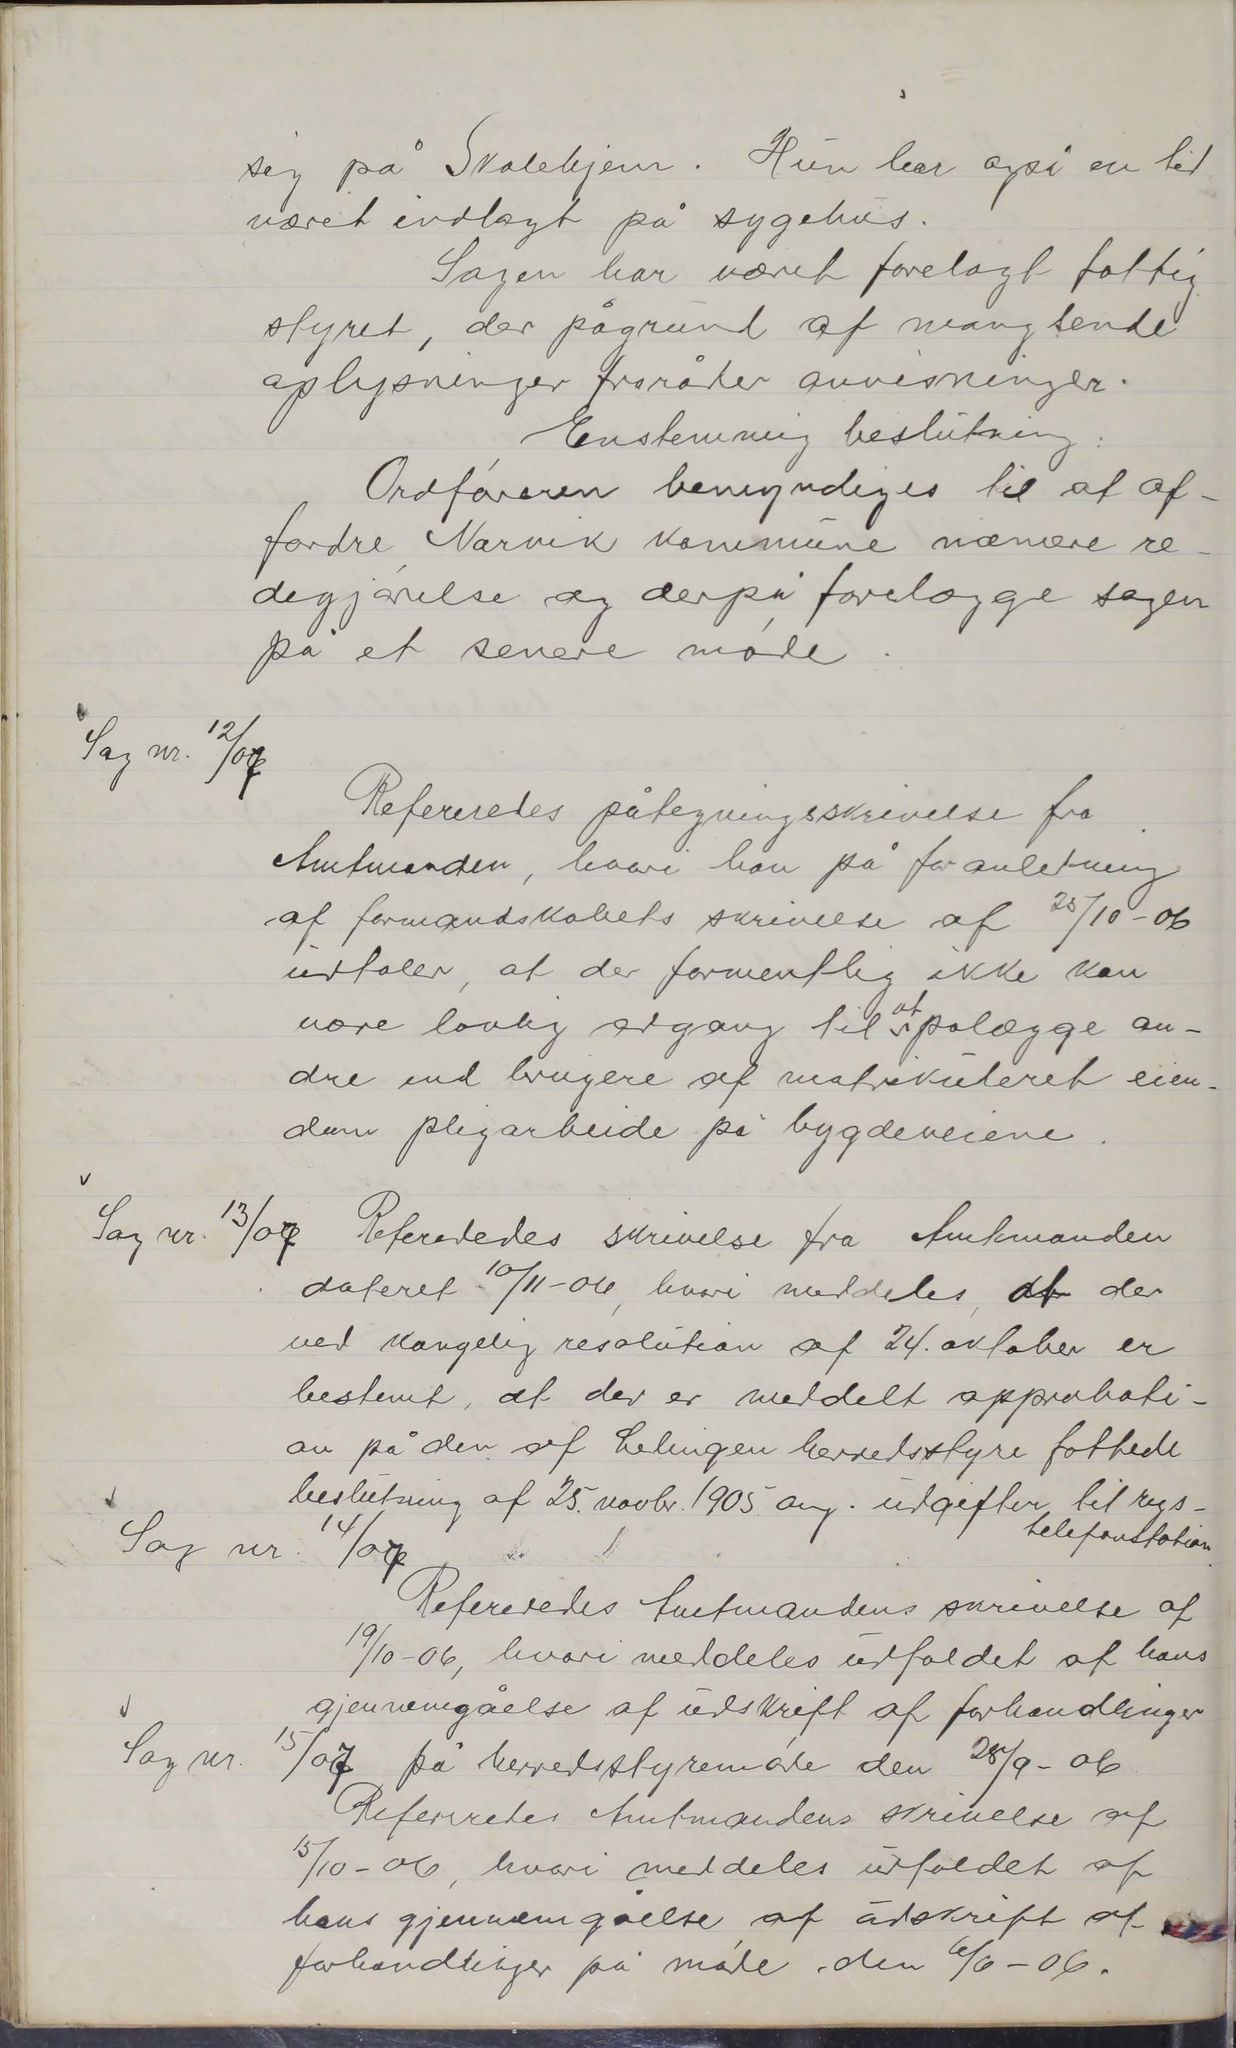 sig på Skolehjem. Hun har også en tid
været indlagt på sygehus.
Sagen har været forelagt fattig
styret, der pågrund af manglende
oplysninger fraråder anvisninger.
Enstemmig beslutning:
Ordføreren bemyndiges til at af-
fordre Narvik kommune nærmere re-
degjørelse og derpå forelægge sagen
på et senere møde.
Sag nr. 12/07
Refereredes påtegningsskrivelse fra
Amtmanden, hvori han på foranledning
af formandskabets skrivelse af 25/10-06
udtaler, at der formentlig ikke kan
være lovlig adgang til at pålægge an-
dre end brugere af matrikuleret eien-
dom pligarbeide på bygdeveiene.
Sag nr. 13/07 Refereredes skrivelse fra Amtmanden
dateret 10/11-06, hvori meddeles, at der
ved kongelig resolution af 24. oktober er
bestemt, at der er meddelt approbati-
on på den af Hetingen herredsstyre fattede
beslutning af 25. novbr. 1905 ang. udgifter til rigs-
telefonstation
Sag nr. 14/07
Refereredes Amtmandens skrivelse af
19/10-06, hvori meddeles udfaldet af hans
gjennemgåelse af udskrift af forhandlinger
Sag nr. 15/07 på herredsstyremøde den 28/9-06
Refereredes Amtmandens skrivelse af
15/10-06, hvori meddeles udfaldet af
hans gjennemgåelse af udskrift af
forhandlinger på møde den 6/6-06.